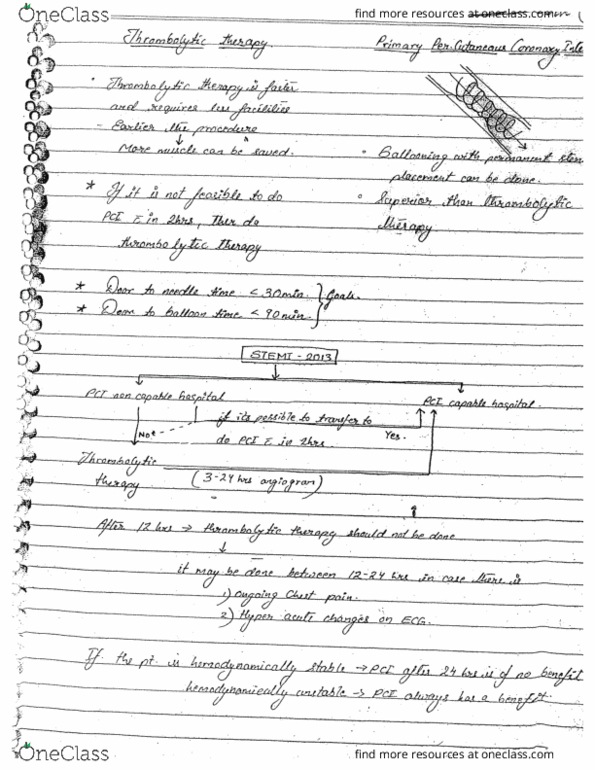 OneClass
find more resources at oneclass.com
Thrombolytic therapy.
Primary Per Cutaneous Coronary Inte
· Thrombolytic therapy is faster
and requires less facilities
- Earlier the procedure
↓
More muscle can be saved.
• Ballooning with permanent sten
placement can be done.
* If it is not feasible to do
• Superior than thrombolytic
PCI c̄ in 2hrs, then do
therapy.
thrombolytic therapy
* Door to needle time < 30min. } Goals.
* Door to balloon time < 90min. }
STEMI - 2013
PCI non capable hospital
PCI capable hospital.
if its possible to transfer to
Not
Yes.
do PCI c̄ in 2hrs.
Thrombolytic
therapy
(3-24 hrs angiogram)
After 12 hrs → thrombolytic therapy should not be done
↓
it may be done between 12-24 hrs in case there is
1) ongoing Chest pain.
2) Hyper acute changes on ECG.
If the pt. is hemodynamically stable → PCI after 24 hrs is of no benefit
hemodynamically unstable → PCI always has a benefit.
OneClass
find more resources at oneclass.com